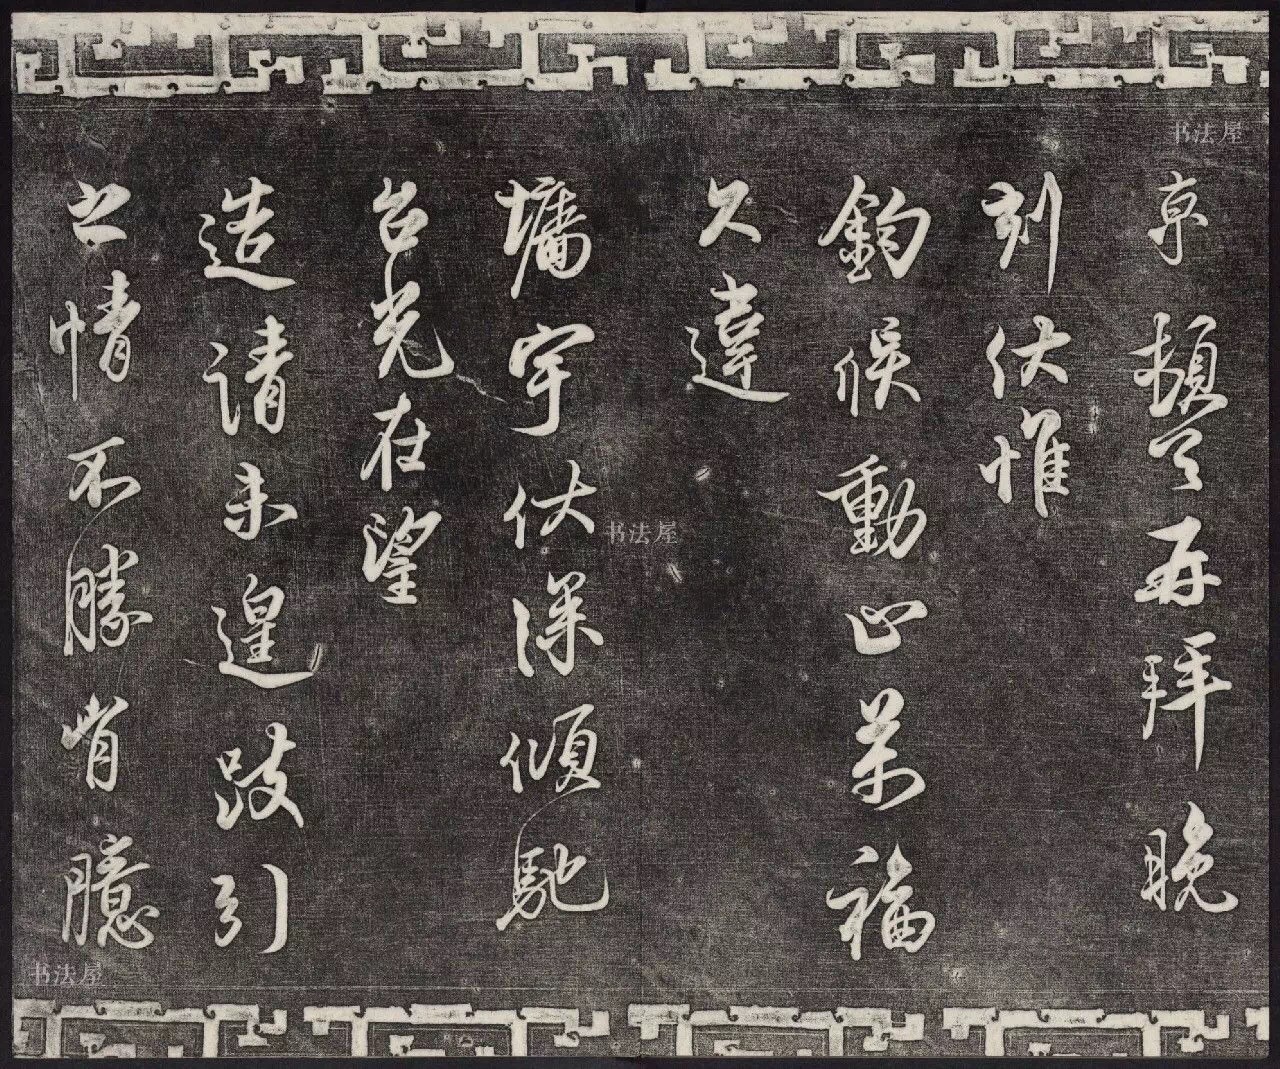 京頓首再拜晚
刻伏惟
鈞候動止萬福
久違
墉宇伏深傾馳
台光在望
造請未遑跂引
之情不勝胷臆
书法屋
书法屋
书法屋